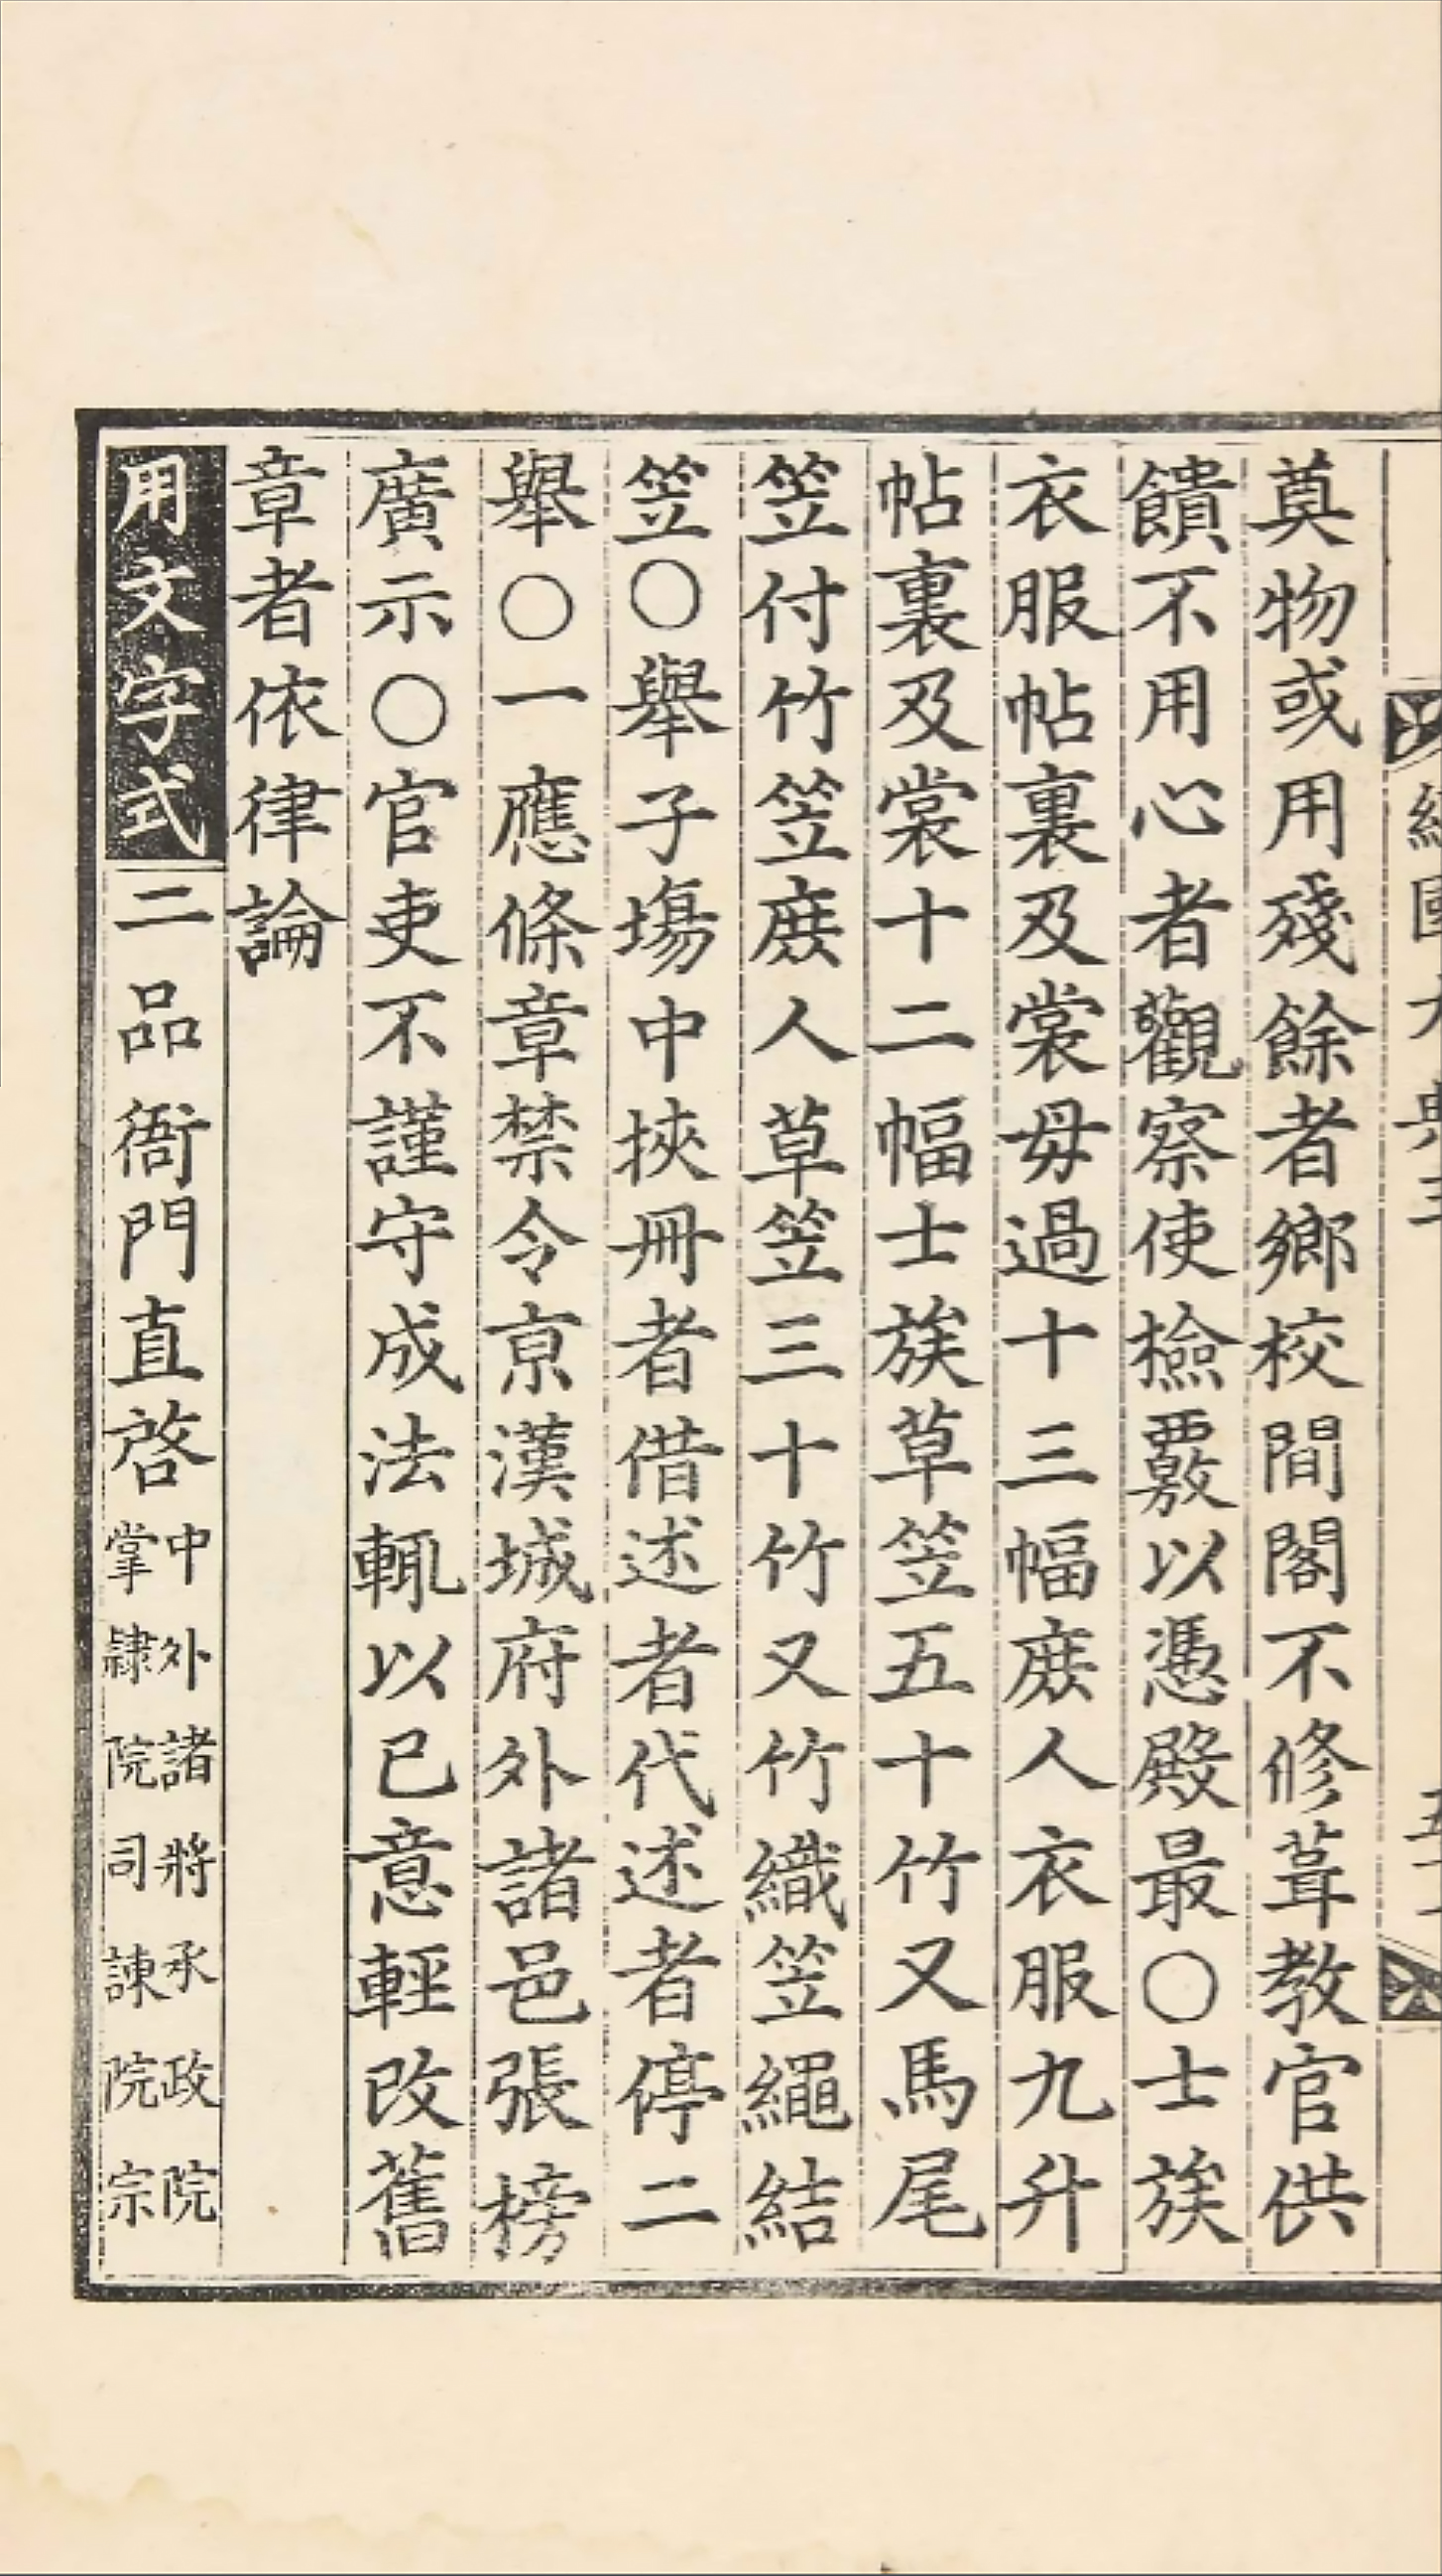 經國大典三
奠物或用殘餘者鄕校間閣不修葺教官供
饋不用心者觀察使撿覈以憑殿最○士族
衣服帖裏及裳毋過十三幅庶人衣服九升
帖裏及裳十二幅士族草笠五十竹又馬尾
笠付竹笠庶人草笠三十竹又竹織笠繩結
笠○擧子塲中挾冊者借述者代述者停二
擧○一應條章禁令京漢城府外諸邑張榜
廣示○官吏不謹守成法輒以已意輕改舊
章者依律論
用文字式二品衙門直啓中外諸將承政院
掌隷院司諫院宗